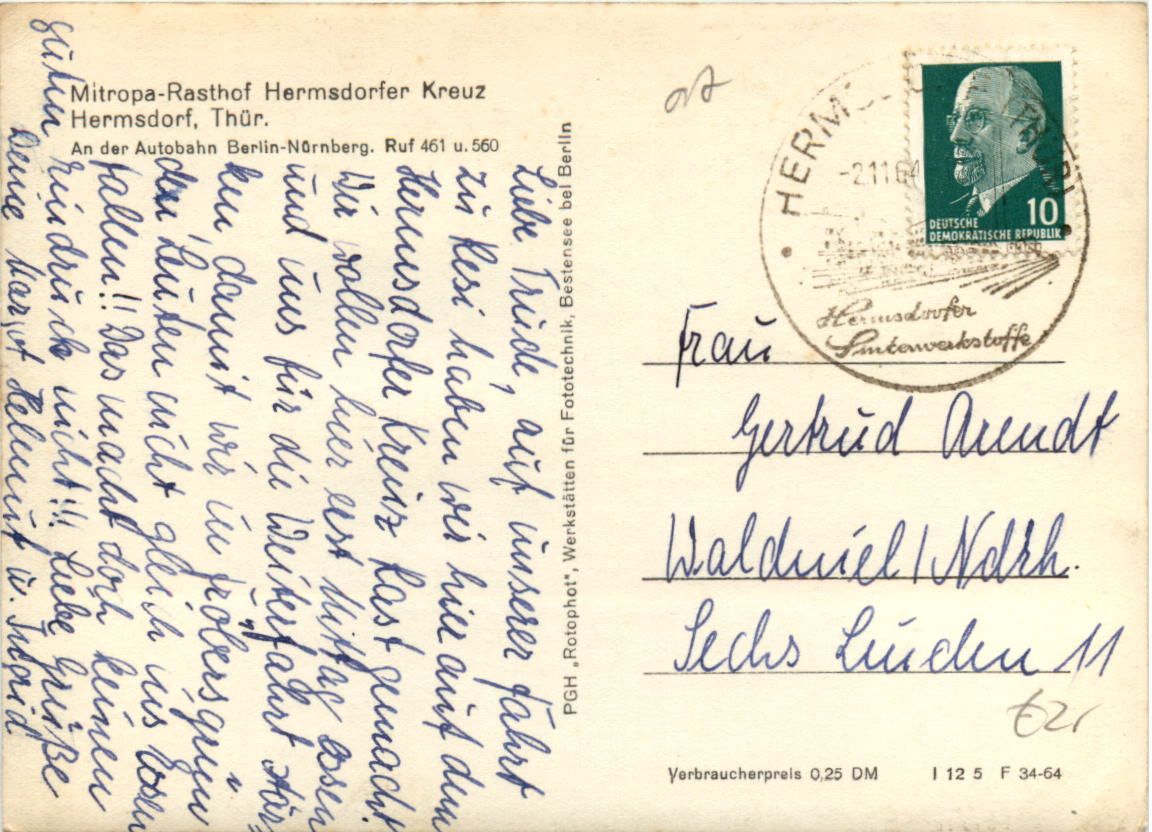 Mitropa-Rasthof Hermsdorfer Kreuz
Hermsdorf, Thür.
An der Autobahn Berlin-Nürnberg. Ruf 461 u. 560
Liebe Trude, auf unserer Fahrt
zu Resi haben wir hier auf dem
Hermsdorfer Kreuz Rast gemacht.
Wir wollen hier erst Mittag essen
und uns für die Weiterfahrt stär-
ken damit wir in Föbersgrün
den Leuten nicht gleich ins Essen
fallen!! Das macht doch keinen
guten Eindruck nicht!! Liebe Grüße
Deine Margot Helmut u. Ingrid
PGH „Rotophot", Werkstätten für Fototechnik, Bestensee bei Berlin
HERMSDORF (THÜR)
-2.11.64
Hermsdorfer
Sinterwerkstoffe
10
DEUTSCHE
DEMOKRATISCHE REPUBLIK
Frau
Gertrud Arendt
Waldniel / Ndrh.
Sechs Linden 11
Verbraucherpreis 0,25 DM I 12 5 F 34-64